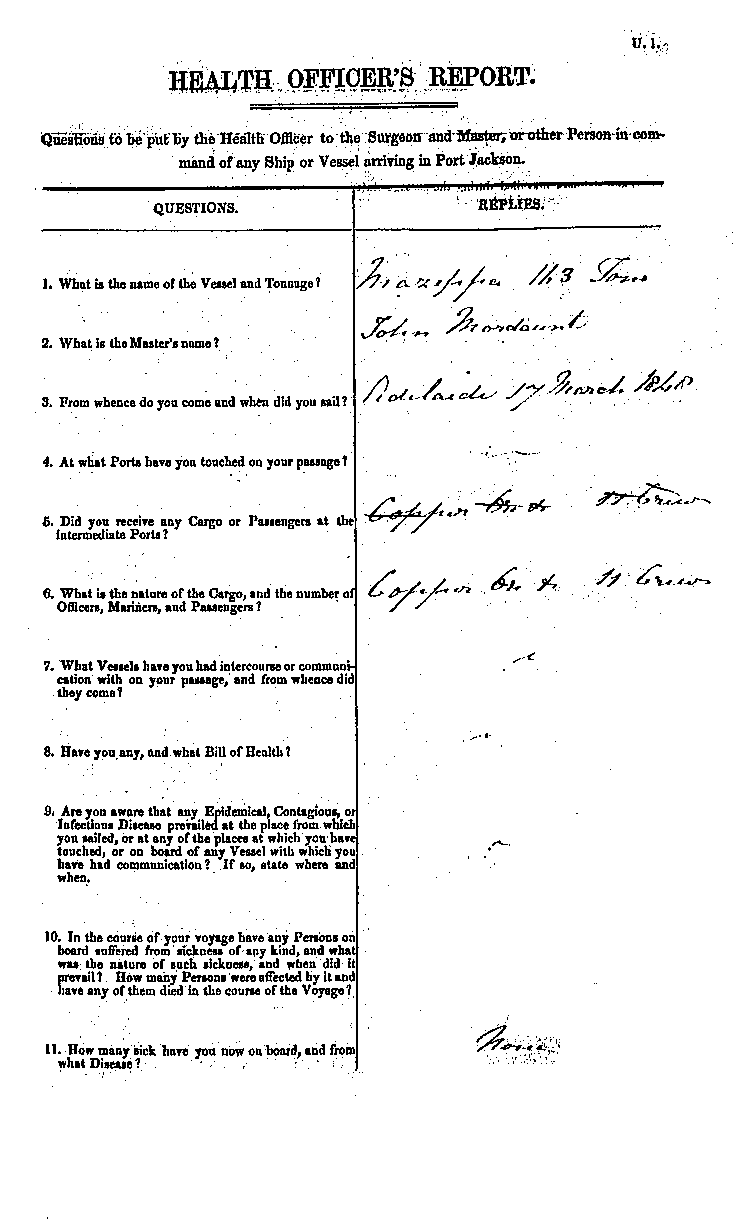 U. 1.
HEALTH OFFICER'S REPORT.
Questions to be put by the Health Officer to the Surgeon and Master, or other Person in com-
mand of any Ship or Vessel arriving in Port Jackson.
QUESTIONS.
REPLIES.
1. What is the name of the Vessel and Tonnage?
Mazeppa 143 Tons
2. What is the Master's name?
John Mordaunt
3. From whence do you come and when did you sail?
Adelaide 17 March 1848
4. At what Ports have you touched on your passage?
5. Did you receive any Cargo or Passengers at the
Intermediate Ports?
Copper Ore & 11 Crew
6. What is the nature of the Cargo, and the number of
Officers, Mariners, and Passengers?
Copper Ore & 11 Crew
7. What Vessels have you had intercourse or communi-
cation with on your passage, and from whence did
they come?
8. Have you any, and what Bill of Health?
9. Are you aware that any Epidemical, Contagious, or
Infectious Disease prevailed at the place from which
you sailed, or at any of the places at which you have
touched, or on board of any Vessel with which you
have had communication? If so, state where and
when.
10. In the course of your voyage have any Persons on
board suffered from sickness of any kind, and what
was the nature of such sickness, and when did it
prevail? How many Persons were affected by it and
have any of them died in the course of the Voyage?
11. How many sick have you now on board, and from
what Disease?
None